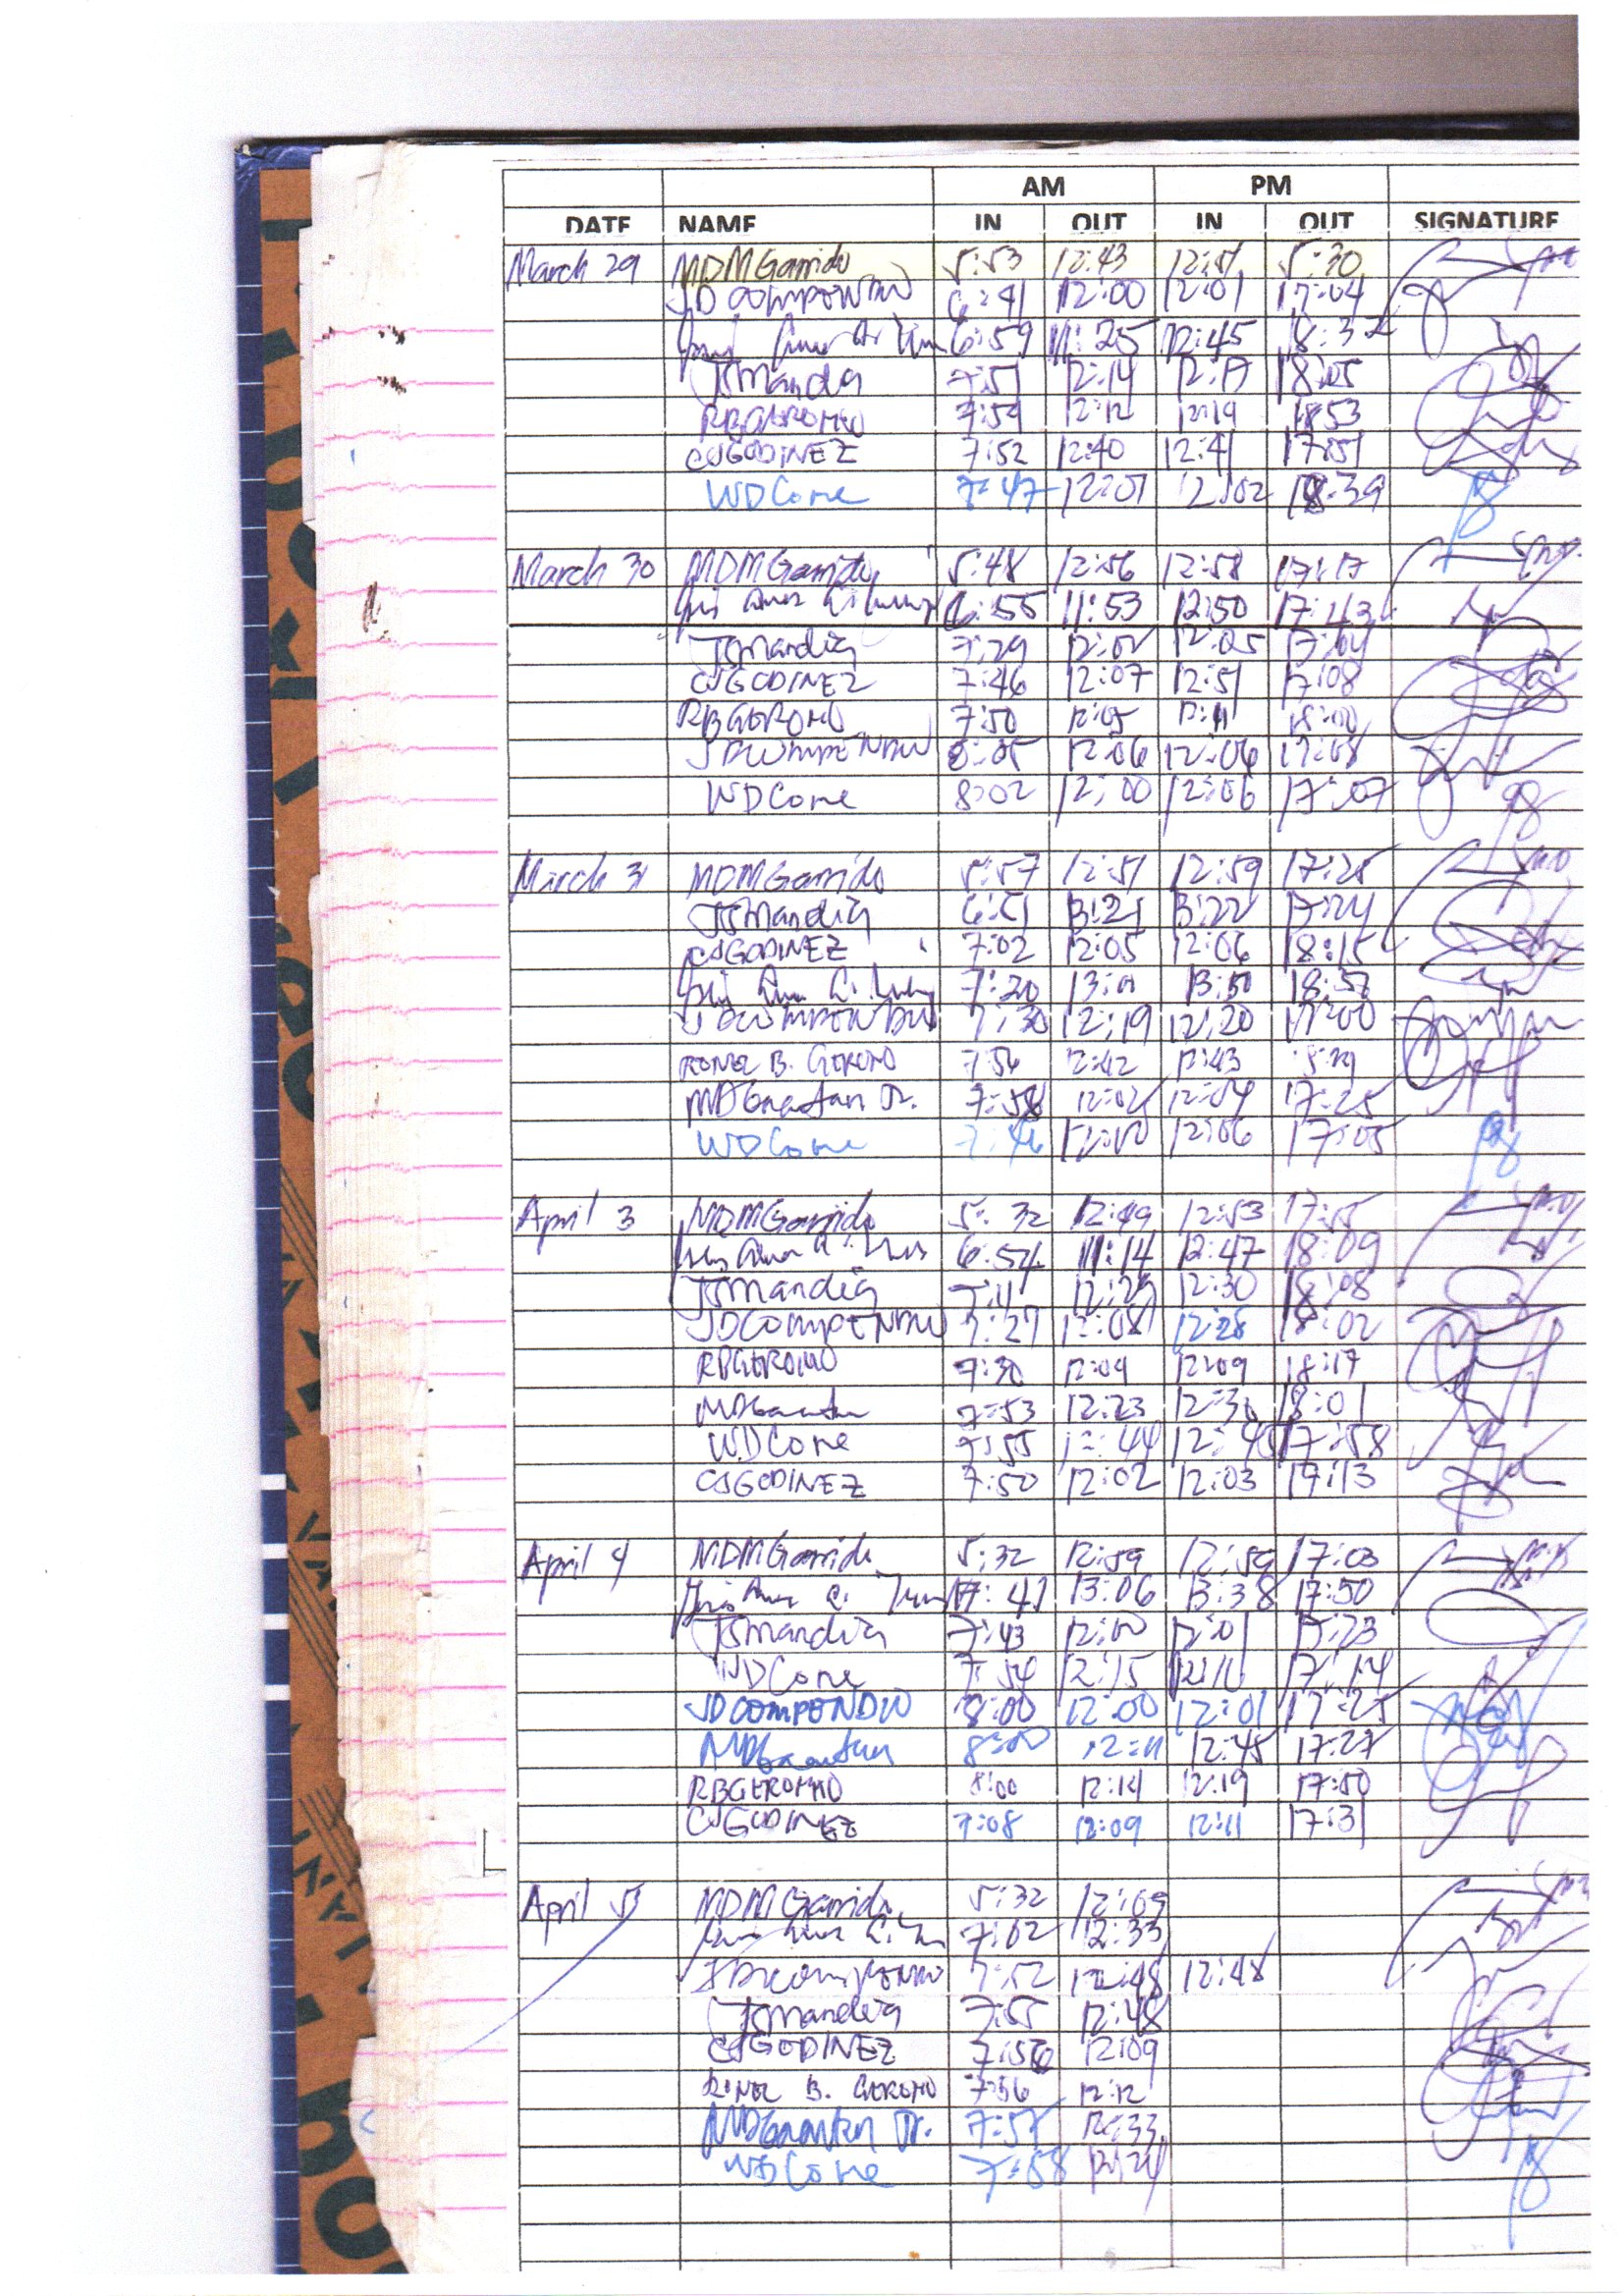 AM PM
DATE NAME IN OUT IN OUT SIGNATURE
March 29 MDMGarrido 5:53 12:43 12:51 5:30
JDCOMPENDIO 6:41 12:00 12:01 17:04
6:59 11:25 12:45 18:32
JSMandia 7:51 12:14 12:17 18:05
RBGEROMO 7:59 12:12 12:19 18:53
CJGODINEZ 7:52 12:40 12:41 17:51
WDCone 7:47 12:01 12:02 18:39
March 30 MDMGarrido 5:48 12:56 12:58 17:17
6:55 11:53 12:50 17:43
JSMandia 7:29 12:02 12:05 17:04
CJGODINEZ 7:46 12:07 12:51 17:08
RBGEROMO 7:50 12:05 12:11 18:00
JDCOMPENDIO 8:05 12:06 12:06 17:08
WDCone 8:02 12:00 12:06 17:07
March 31 MDMGarrido 5:57 12:51 12:59 17:25
JSMandia 6:51 13:21 13:22 17:24
CJGODINEZ 7:02 12:05 12:06 18:15
7:20 13:01 13:50 18:57
JDCOMPENDIO 7:30 12:19 12:20 17:00
RONEL B. GEROMO 7:56 12:42 12:43
MDGaantan Jr. 7:58 12:02 12:04 17:25
WDCone 7:46 12:00 12:06 17:05
April 3 MDMGarrido 5:32 12:49 12:53 17:55
6:54 11:14 12:47 18:09
JSMandia 7:11 12:29 12:30 18:08
JDCOMPENDIO 7:27 12:08 12:28 18:02
RBGEROMO 7:30 12:09 12:09 18:17
MDGaantan 7:53 12:23 12:31 18:01
WDCone 7:55 12:44 12:45 17:58
CJGODINEZ 7:50 12:02 12:03 17:13
April 4 MDMGarrido 5:32 12:59 12:59 17:03
7:41 13:06 13:38 17:50
JSMandia 7:43 12:00 12:01 17:23
WDCone 7:54 12:15 12:16 17:14
JDCOMPENDIO 8:00 12:00 12:01 17:25
MDGaantan 8:00 12:11 12:45 17:27
RBGEROMO 8:00 12:14 12:19 17:50
CJGODINEZ 7:08 12:09 12:11 17:31
April 5 MDMGarrido 5:32 12:09
7:02 12:33
JDCOMPENDIO 7:52 12:48 12:48
JSMandia 7:55 12:48
CJGODINEZ 7:56 12:09
RONEL B. GEROMO 7:56 12:12
MDGaantan Jr. 7:57 12:33
WDCone 7:58 12:24